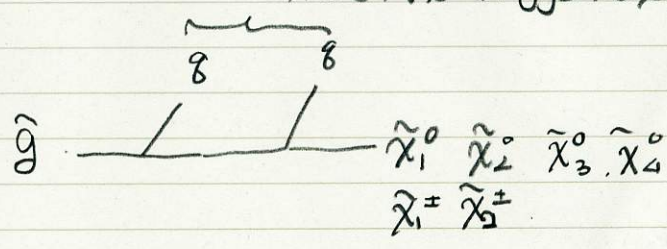 q q
g̃ χ̃₁⁰ χ̃₂⁰ χ̃₃⁰. χ̃₄⁰
χ̃₁± χ̃₂±